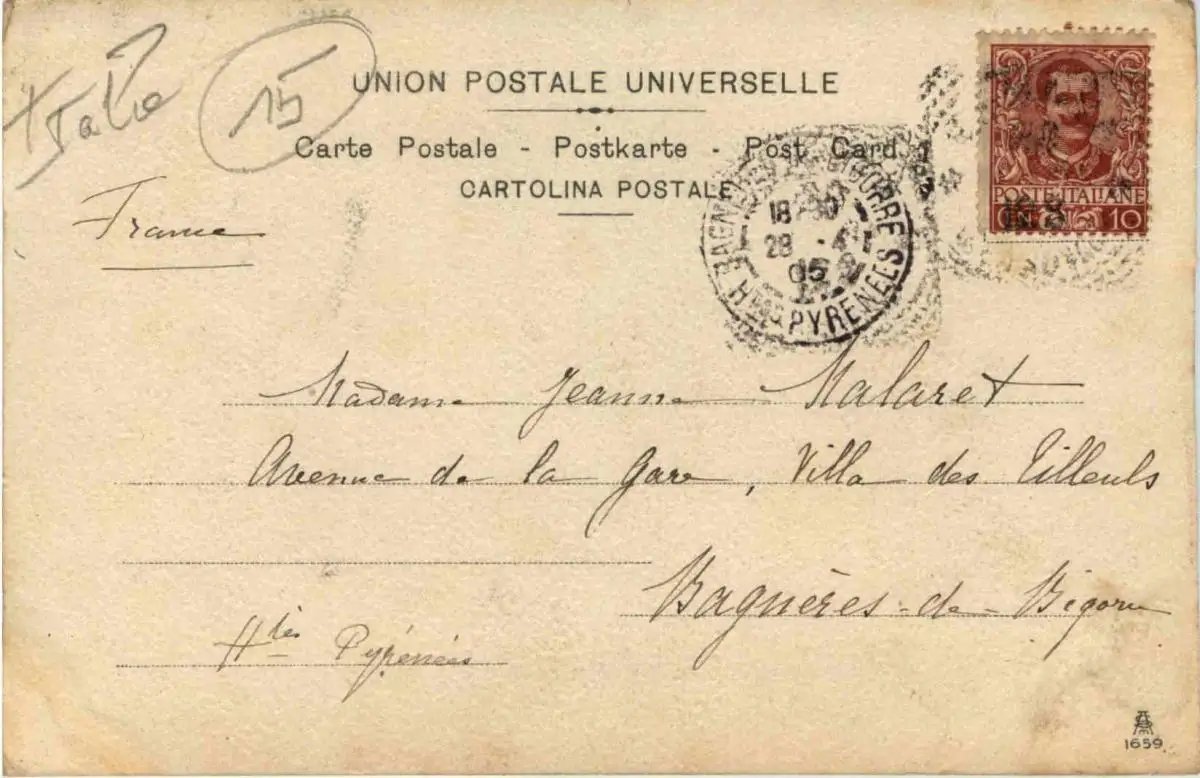 Italie
15
UNION POSTALE UNIVERSELLE
Carte Postale - Postkarte - Post Card
CARTOLINA POSTALE
France
POSTE ITALIANE
10
BAGNÈRES DE BIGORRE
18 30
28
05
HTES PYRENEES
Madame Jeanne Malaret
Avenue de la Gare, Villa des Tilleuls
Bagnères-de-Bigorre
Htes Pyrénées
1659